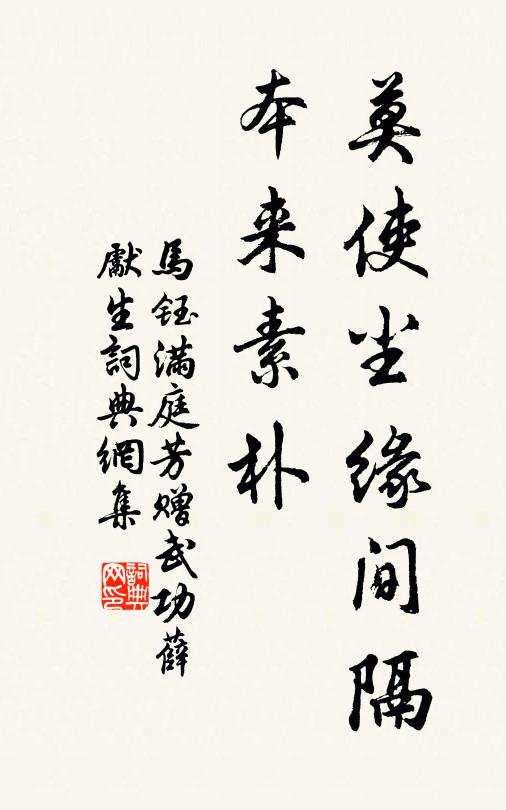 莫使尘缘间隔
本来素朴
馬钰滿庭芳赠武功薛
獻生詞典網集
詞典网印